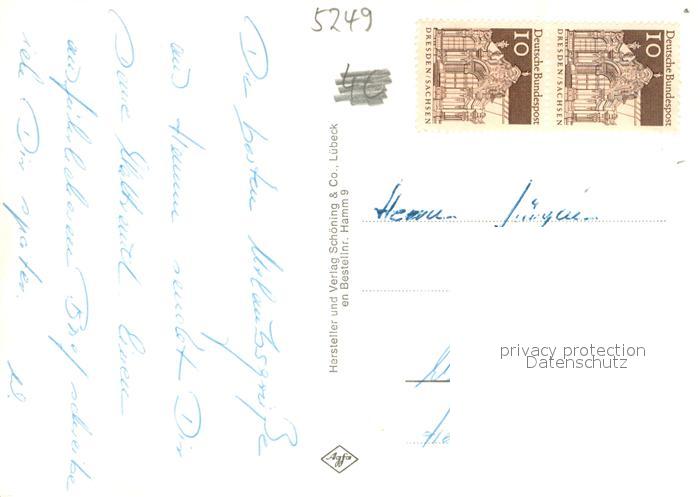 5249
Die besten Urlaubsgrüße
aus Hamm sendet Dir
Deine Waltraud. Einen
ausführlicheren Brief schreibe
ich Dir später.
Hersteller und Verlag Schöning & Co., Lübeck
en Bestellnr. Hamm 9
Agfa
10
Deutsche Bundespost
DRESDEN/SACHSEN
10
Deutsche Bundespost
DRESDEN/SACHSEN
Herrn Jürgen
privacy protection
Datenschutz